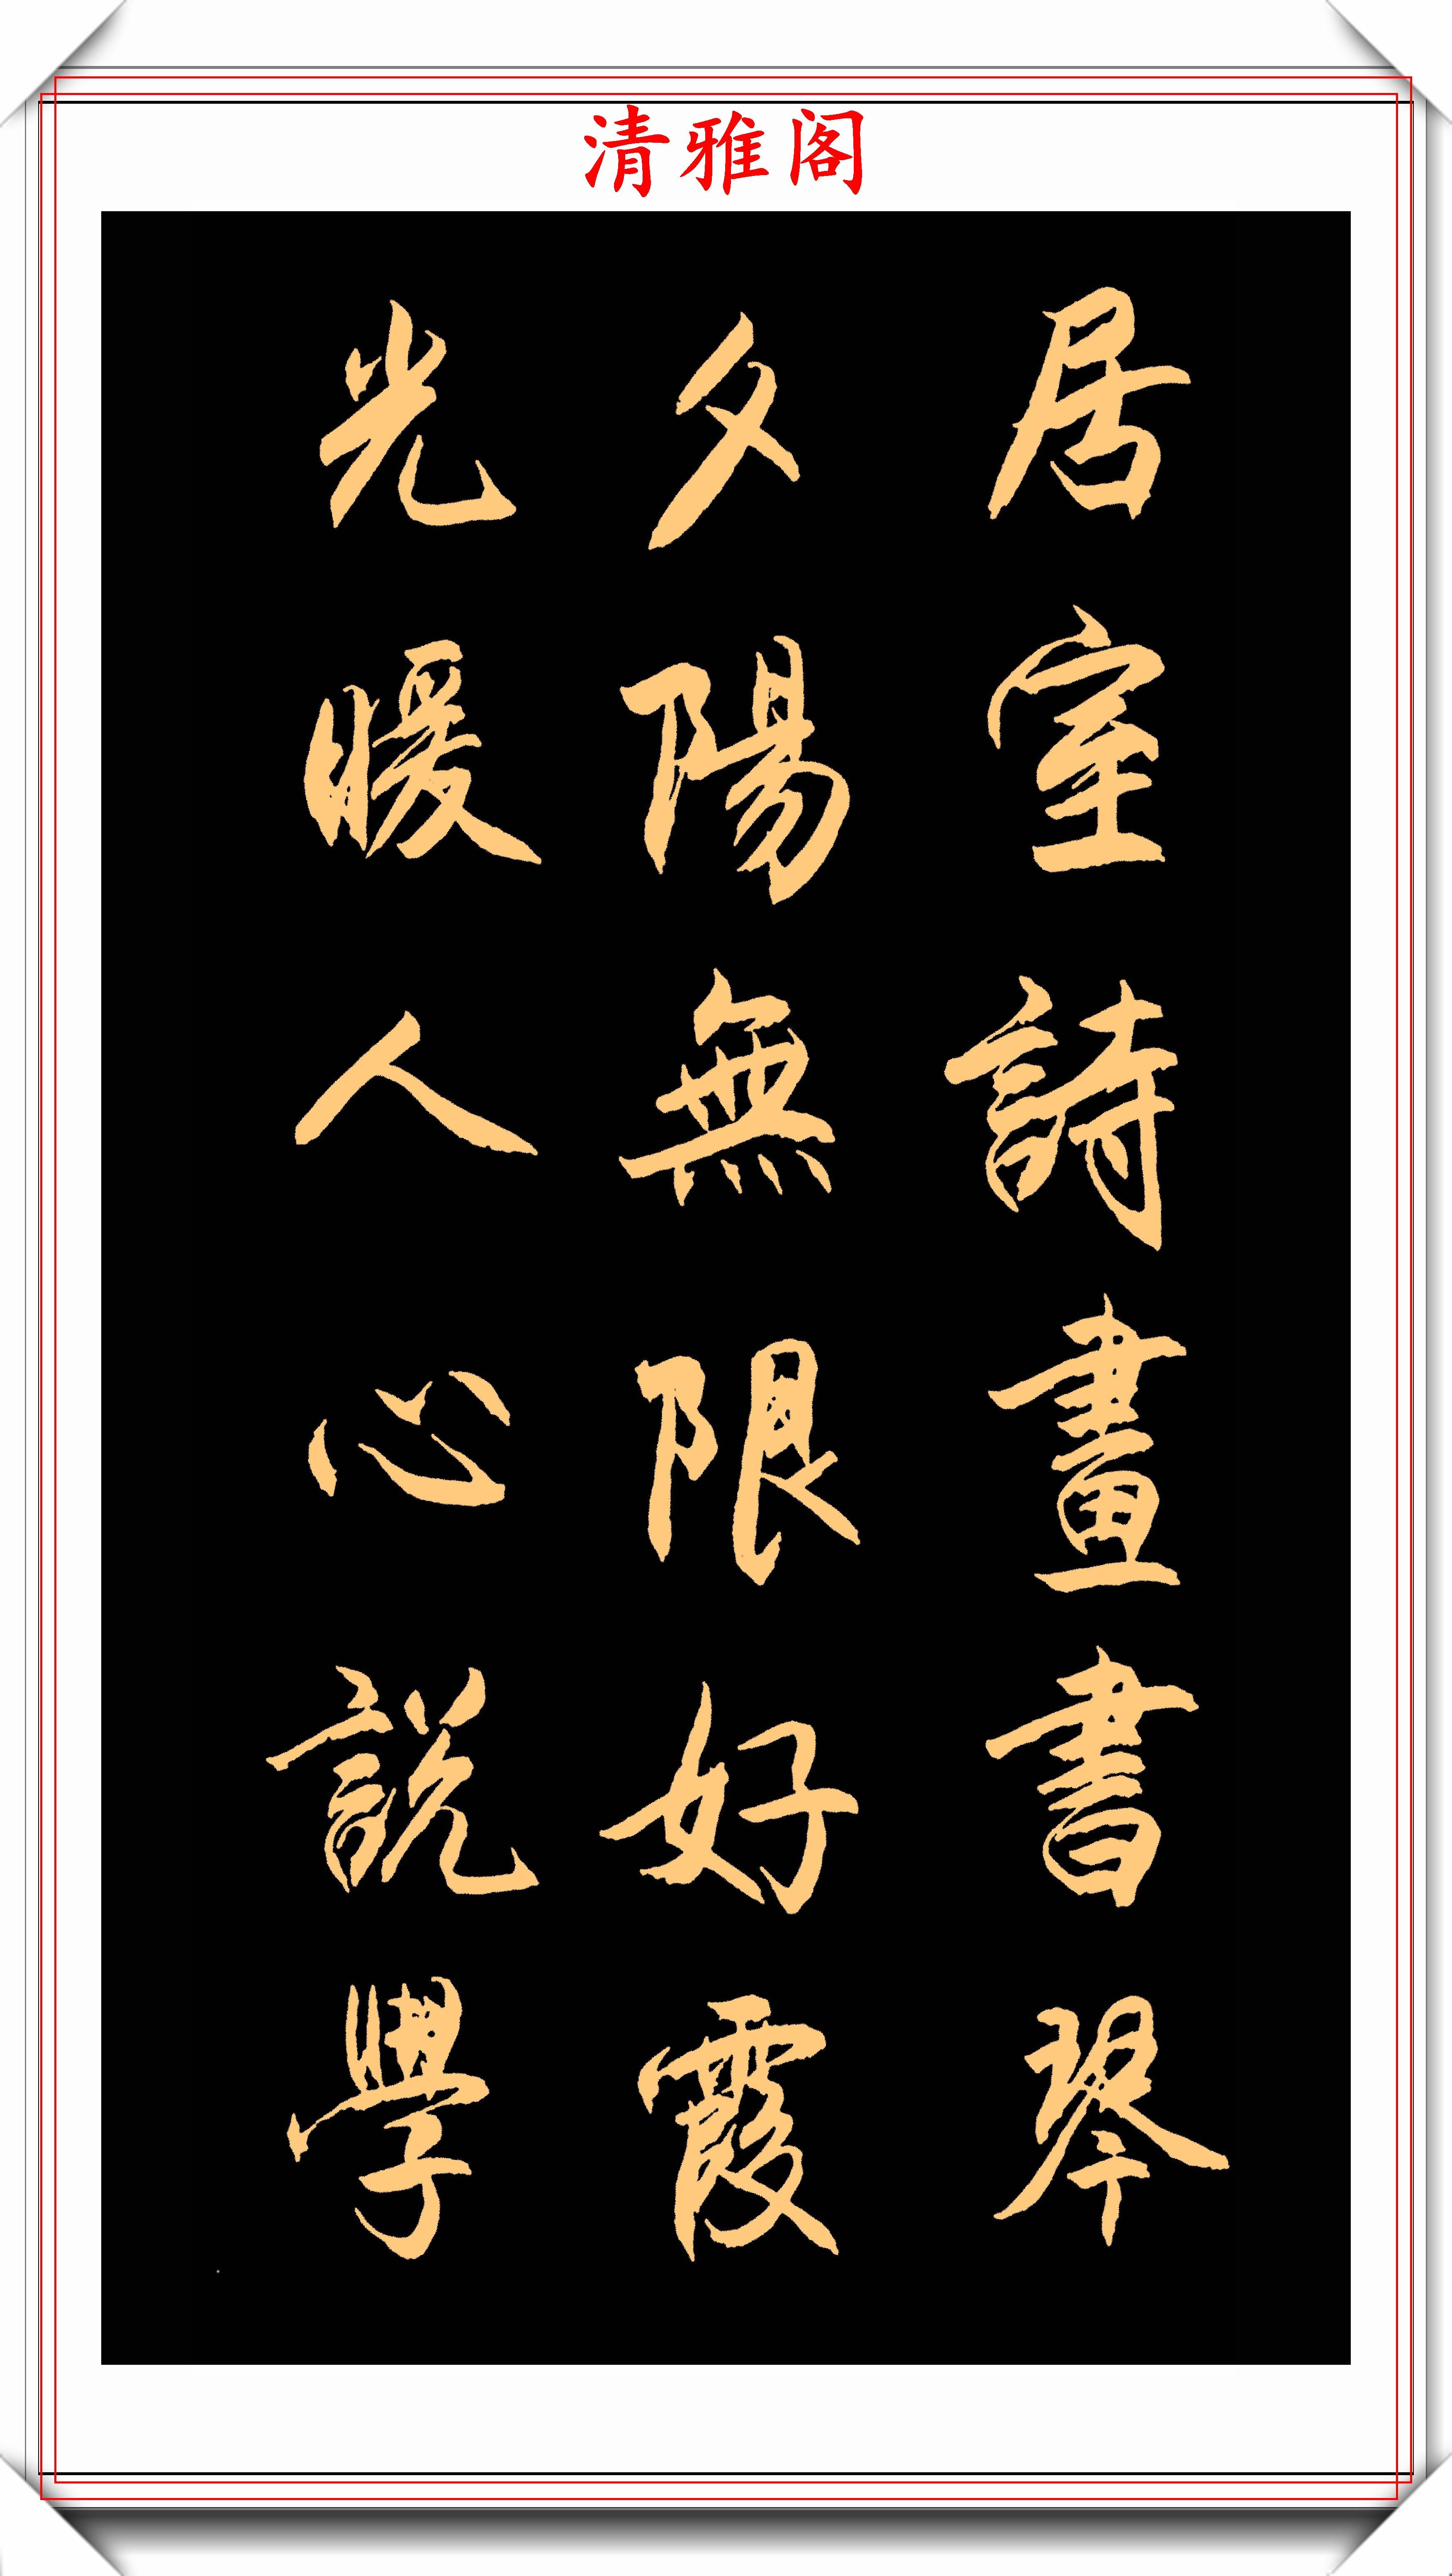 清雅阁
居室詩畫書琴
夕陽無限好霞
光暖人心說學